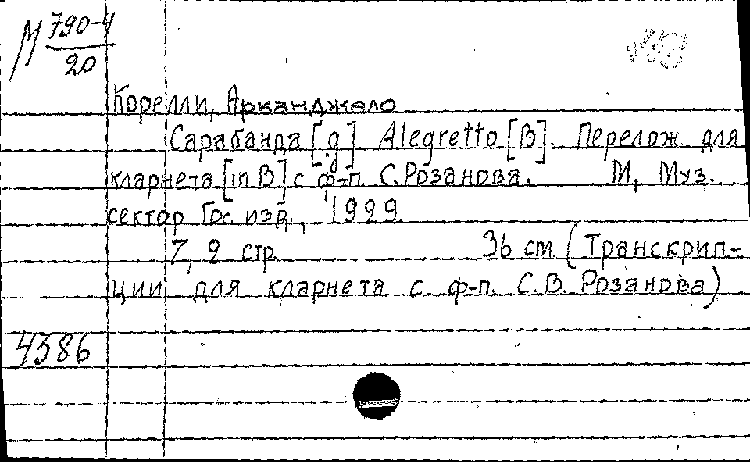 М 790-4
20
Корелли, Арканджело
Сарабанда [g] Alegretto [B]. Перелож для
кларнета [in B] с ф-п С. Розанова. М, Муз.
сектор Гос. изд,, 1929
7, 2 стр 36 см (Транскрип-
ции для кларнета с ф-п. С.В. Розанова)
4386